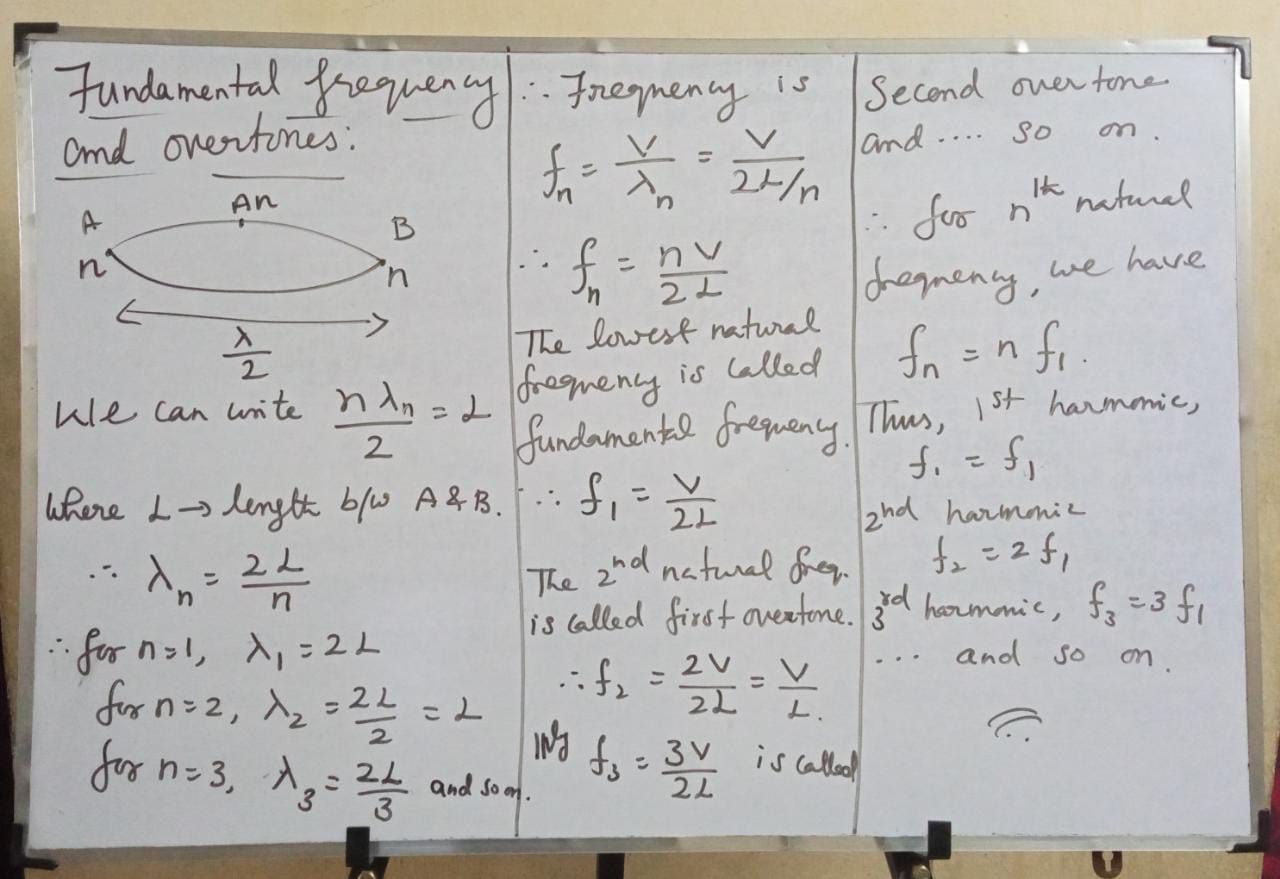 Fundamental frequency
and overtones:
An
A
B
n
n
λ/2
We can write nλₙ/2 = L
Where L → length b/w A & B.
∴ λₙ = 2L/n
∴ for n=1, λ₁ = 2L
for n=2, λ₂ = 2L/2 = L
for n=3, λ₃ = 2L/3 and so on.
∴ Frequency is
fₙ = V/λₙ = V/2L/n
∴ fₙ = nV/2L
The lowest natural
frequency is called
fundamental frequency.
∴ f₁ = V/2L
The 2nd natural freq.
is called first overtone.
∴ f₂ = 2V/2L = V/L.
lllly f₃ = 3V/2L is called
Second overtone
and .... so on.
∴ for nth natural
frequency, we have
fₙ = n f₁.
Thus, 1st harmonic,
f₁ = f₁
2nd harmonic
f₂ = 2 f₁
3rd harmonic, f₃ = 3 f₁
... and so on.